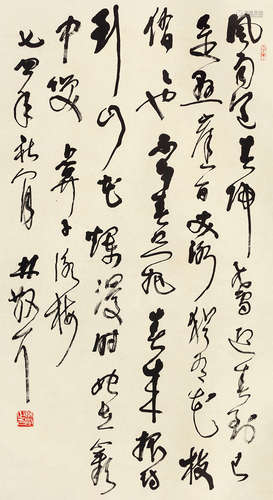 風雨送春归飛雪迎春到已
是悬崖百丈冰犹有花枝
俏也不争春只把春来报待
到山花爛漫时她在叢
中笑 卜算子咏梅
七四年秋月 林散耳